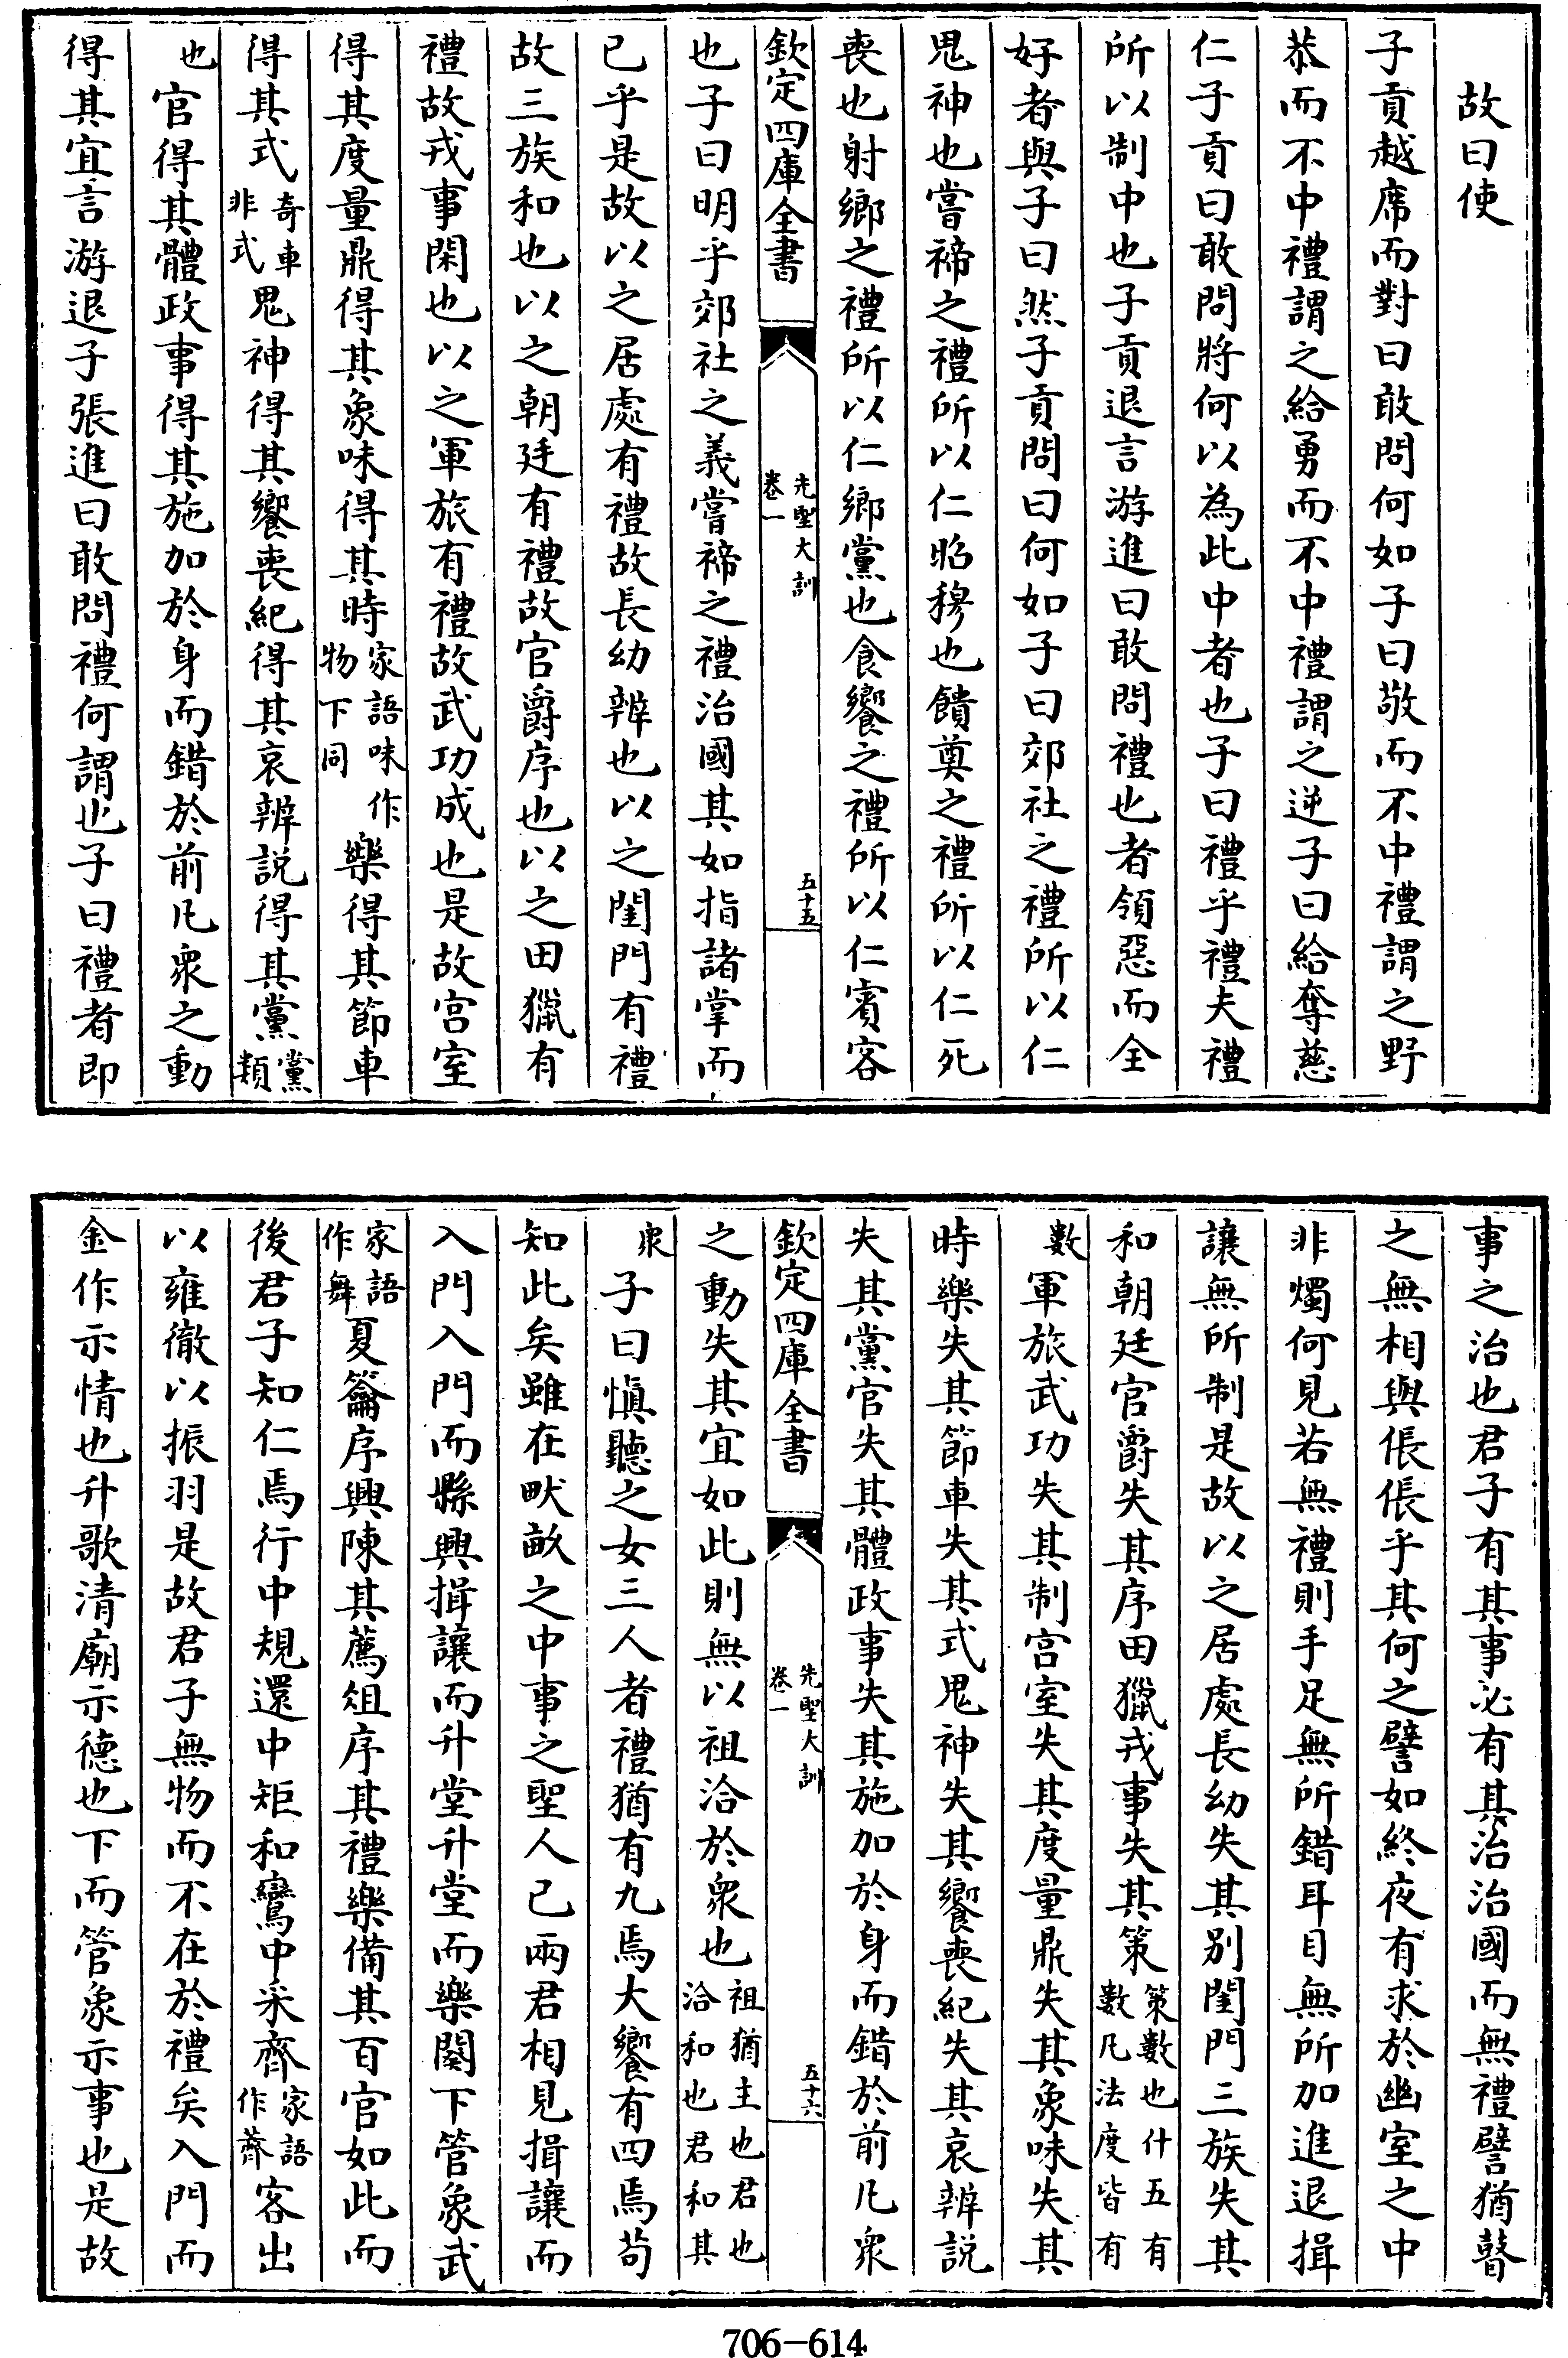 故曰使
子貢越席而對曰敢問何如子曰敬而不中禮謂之野
恭而不中禮謂之給勇而不中禮謂之逆子曰給奪慈
仁子貢曰敢問將何以為此中者也子曰禮乎禮夫禮
所以制中也子貢退言游進曰敢問禮也者領惡而全
好者與子曰然子貢問曰何如子曰郊社之禮所以仁
鬼神也嘗禘之禮所以仁昭穆也饋奠之禮所以仁死
喪也射鄉之禮所以仁鄉黨也食饗之禮所以仁賓客
欽定四庫全書 先聖大訓 卷一 五十五
也子曰明乎郊社之義嘗禘之禮治國其如指諸掌而
已乎是故以之居處有禮故長幼辨也以之閨門有禮
故三族和也以之朝廷有禮故官爵序也以之田獵有
禮故戎事閑也以之軍旅有禮故武功成也是故宮室
得其度量鼎得其象味得其時家語味作物下同樂得其節車
得其式奇車非式鬼神得其饗喪紀得其哀辨説得其黨黨類
也官得其體政事得其施加於身而錯於前凡衆之動
得其宜言游退子張進曰敢問禮何謂也子曰禮者即
事之治也君子有其事必有其治治國而無禮譬猶瞽
之無相與倀倀乎其何之譬如終夜有求於幽室之中
非燭何見若無禮則手足無所錯耳目無所加進退揖
讓無所制是故以之居處長幼失其別閨門三族失其
和朝廷官爵失其序田獵戎事失其策策數也什五有數凡法度皆有
數軍旅武功失其制宮室失其度量鼎失其象味失其
時樂失其節車失其式鬼神失其饗喪紀失其哀辨説
失其黨官失其體政事失其施加於身而錯於前凡衆
欽定四庫全書 先聖大訓 卷一 五十六
之動失其宜如此則無以祖洽於衆也祖猶主也君也洽和也君和其
衆子曰慎聽之女三人者禮猶有九焉大饗有四焉苟
知此矣雖在畎畝之中事之聖人已兩君相見揖讓而
入門入門而縣興揖讓而升堂升堂而樂闋下管象武
家語作舞夏籥序興陳其薦俎序其禮樂備其百官如此而
後君子知仁焉行中規還中矩和鸞中采齊家語作薺客出
以雍徹以振羽是故君子無物而不在於禮矣入門而
金作示情也升歌清廟示德也下而管象示事也是故
706-614